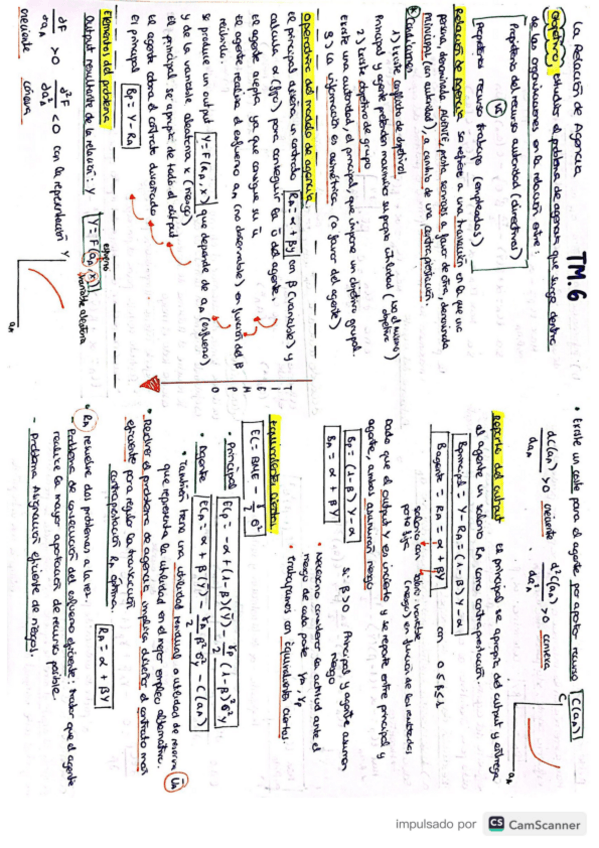 La Relación de Agencia
TM.6
Objetivo: estudiar el problema de agencia que surge dentro
de las organizaciones en la relación entre:
Propietario del recurso autoridad (directivos)
VS
propietarios recurso trabajo (empleados)
Relación de agencia se refiere a una transacción en la que una
persona, denominada AGENTE, presta servicios a favor de otra, denominada
PRINCIPAL (con autoridad), a cambio de una contraprestación.
Condiciones
1) Existe conflicto de objetivos
Principal y agente pretenden maximizar su propia utilidad (no el mismo objetivo)
2) Existe objetivo de grupo
Existe una autoridad, el principal, que impone un objetivo grupal.
3) La información es asimétrica (a favor del agente)
Operativa del modelo de agencia.
El principal diseña un contrato RA = α + βY con β (variable) y
calcula α (fijo) para conseguir la ū del agente.
El agente acepta ya que consigue su ū
El agente realiza el esfuerzo aA (no observable) en función del β
recibido.
Se produce un output Y = F(aA, x) que depende de aA (esfuerzo)
y de la variable aleatoria x (riesgo)
El principal se apropia de todo el output
El agente cobra el contrato diseñado
El principal BP = Y - RA
TIEMPO
Elementos del problema
Output resultante de la relación: Y
Y = F(aA, x)
esfuerzo
variable aleatoria
∂F/∂aA > 0 ∂²F/∂aA² < 0 con la representación Y
creciente cóncava
aA
• Existe un coste para el agente por aportar recurso C(aA)
dC(aA)/daA > 0 creciente d²C(aA)/daA² > 0 convexa
C
aA
Reparto del output El principal se apropia del output y entrega
al agente un salario RA como contraprestación.
Bprincipal = Y - RA = (1-β)Y - α
Bagente = RA = α + βY con 0 ≤ β ≤ 1
salario con parte fija
salario variable (riesgo) en función de los resultados
Dado que el output Y es incierto y se reparte entre principal y
agente, ambos asumirán riesgo
BP = (1-β)Y - α
BA = α + βY
Si β > 0 Principal y agente asumen riesgo
• Necesario considerar la actitud ante el
riesgo de cada parte rA, rP
• Trabajamos con Equivalentes Ciertos.
Equivalentes Ciertos
• Principal ECP = -α + (1-β)(Ȳ) - rP/2 (1-β)²σ²Y
• Agente ECA = α + β(Ȳ) - rA/2 β²σ²Y - C(aA)
• También tiene una utilidad residual o utilidad de reserva ūA
que representa la utilidad en el mejor empleo alternativo.
• Resolver el problema de agencia implica diseñar el contrato más
eficiente para regular la transacción
contraprestación RA óptima RA = α + βY
• RA resuelve dos problemas a la vez.
- Problema de consecución del esfuerzo eficiente: tratar que el agente
realice la mayor aportación de recurso posible.
- Problema asignación eficiente de riesgos.
impulsado por CS CamScanner